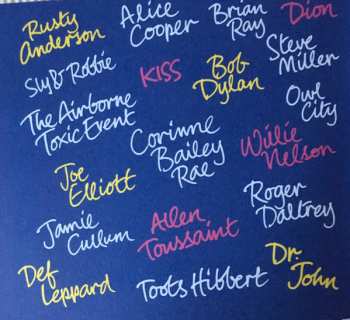 Rusty
Anderson
Alice
Cooper
Brian
Ray
Dion
Sly & Robbie
KISS
Bob
Dylan
Steve
Miller
The Airborne
Toxic Event
Corinne
Bailey
Rae
Owl
City
Willie
Nelson
Joe
Elliott
Jamie
Cullum
Allen
Toussaint
Roger
Daltrey
Def
Leppard
Toots Hibbert
Dr.
John